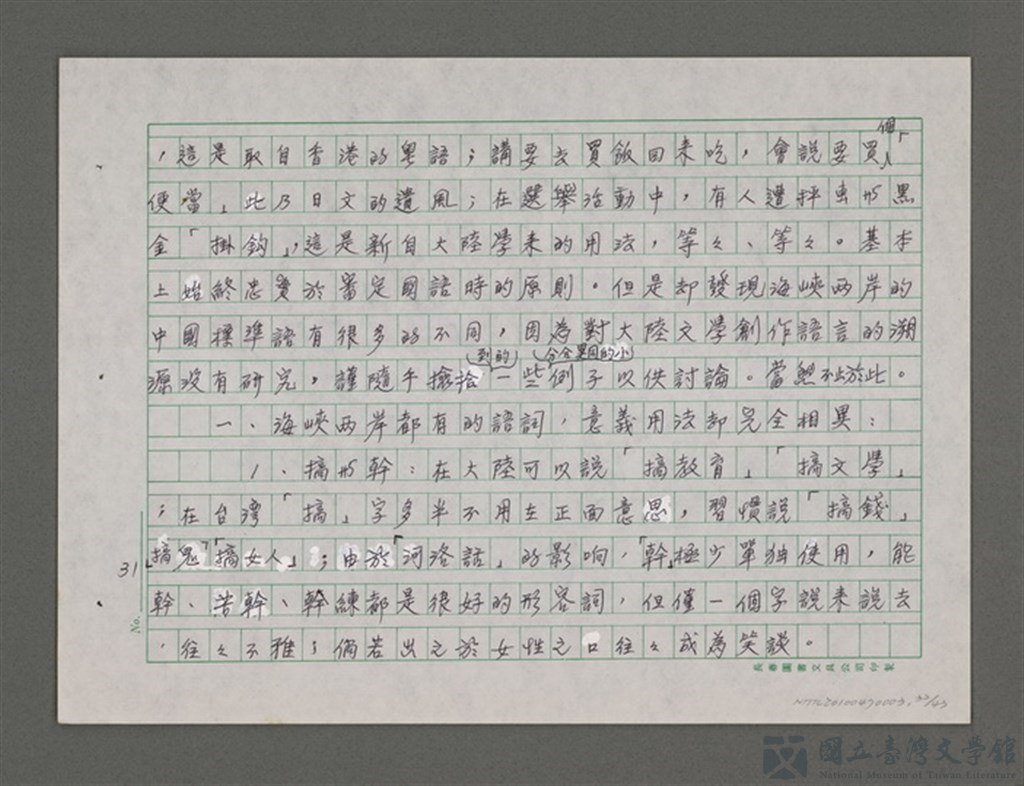 ，這是取自香港的粵語；講要去買飯回來吃，會說要買個「
便當」此乃日文的遺風；在選舉活動中，有人遭抨擊與黑
金「掛鈎」，這是新自大陸學來的用法，等々、等々。基本
上始終忠實於審定國語時的原則。但是却發現海峽兩岸的
中國標準語有很多的不同，因為對大陸文學創作語言的溯
到的 今全是同的小
源沒有研究，謹隨手撿拾一些例子以供討論。當然不止於此。
一、海峽兩岸都有的語詞，意義用法却完全相異：
1、搞和幹：在大陸可以說「搞教育」「搞文學」
；在台灣「搞」字多半不用在正面意思，習慣說「搞錢」
「搞鬼」「搞女人」；由於「河洛話」的影响，「幹」極少單独使用，能
幹、苦幹、幹練都是很好的形容詞，但僅一個字說來說去
，往々不雅；倘若出之於女性之口往々成為笑談。
31
No.
長春圖書文具公司印製
NMTL20100470003.32/43
國立臺灣文學館
National Museum of Taiwan Literature